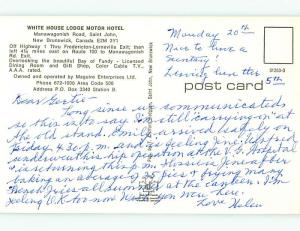 WHITE HOUSE LODGE MOTOR HOTEL
Manawagonish Road, Saint John,
New Brunswick, Canada E2M
Off Highway 1 Thru Fredericton-Lorneville Exit; then
left 4¼ miles east on Route 100 to Manawagonish
Rd. Exit.
Overlooking the beautiful Bay of Fundy - Licensed
Dining Room and Gift Shop, Color Cable T.V.,
Owned and operated by Maguire Enterprises Ltd.
Phone 672-1000 Area Code 506
Address P.O. Box 3340 Station B
Monday 20th
Nice to have a
Secretary!
Leaving here the
5th
post card
Dear Gertie
Long since we communicated
so this into say "I'm still carrying on" at
the old stand. Emily arrived safely on
Friday 4:30 p.m. and is feeling fine. Winfred
underwent hip operation at the J. Hospital
is returning thing m. Flossie fine after
baking an average of 35 pies & frying many
French Fries all Summer at the canteen. I'm
feeling O.K. too now. Wish you were here.
Love Helen